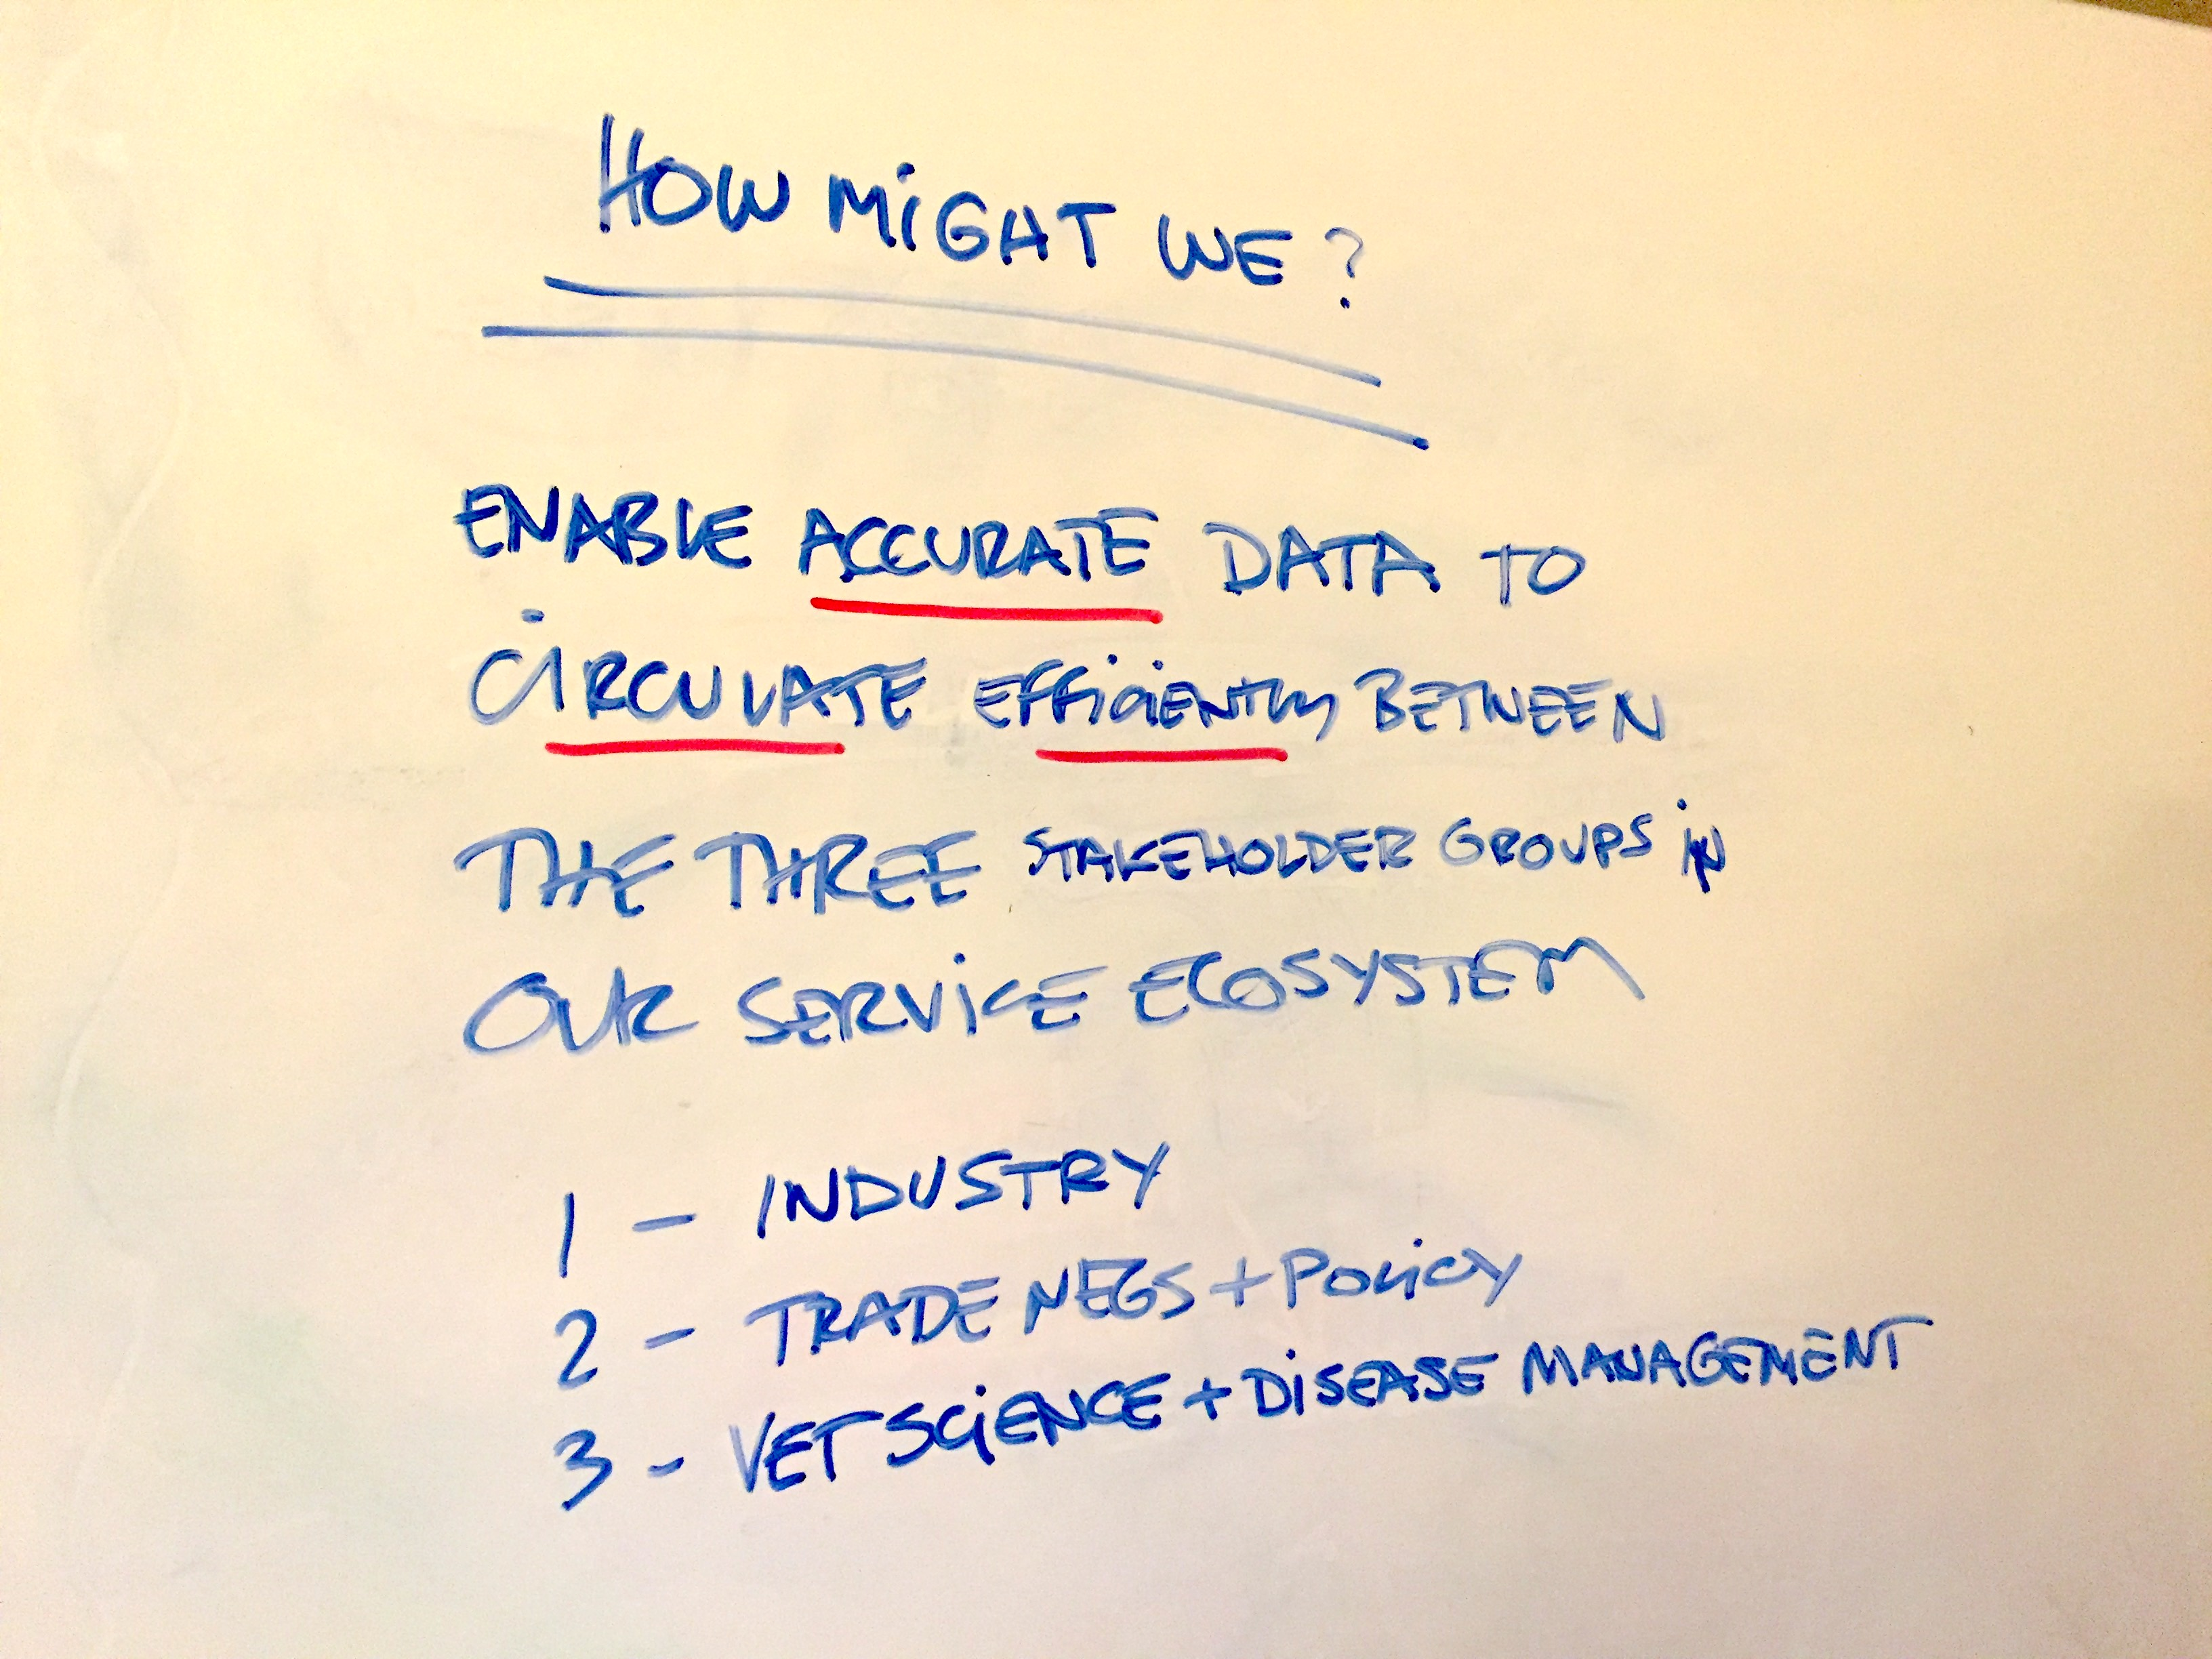 HOW MIGHT WE?
ENABLE ACCURATE DATA TO
CIRCULATE EFFICIENTLY BETWEEN
THE THREE STAKEHOLDER GROUPS IN
OUR SERVICE ECOSYSTEM
1 - INDUSTRY
2 - TRADE NEGS + POLICY
3 - VET SCIENCE + DISEASE MANAGEMENT